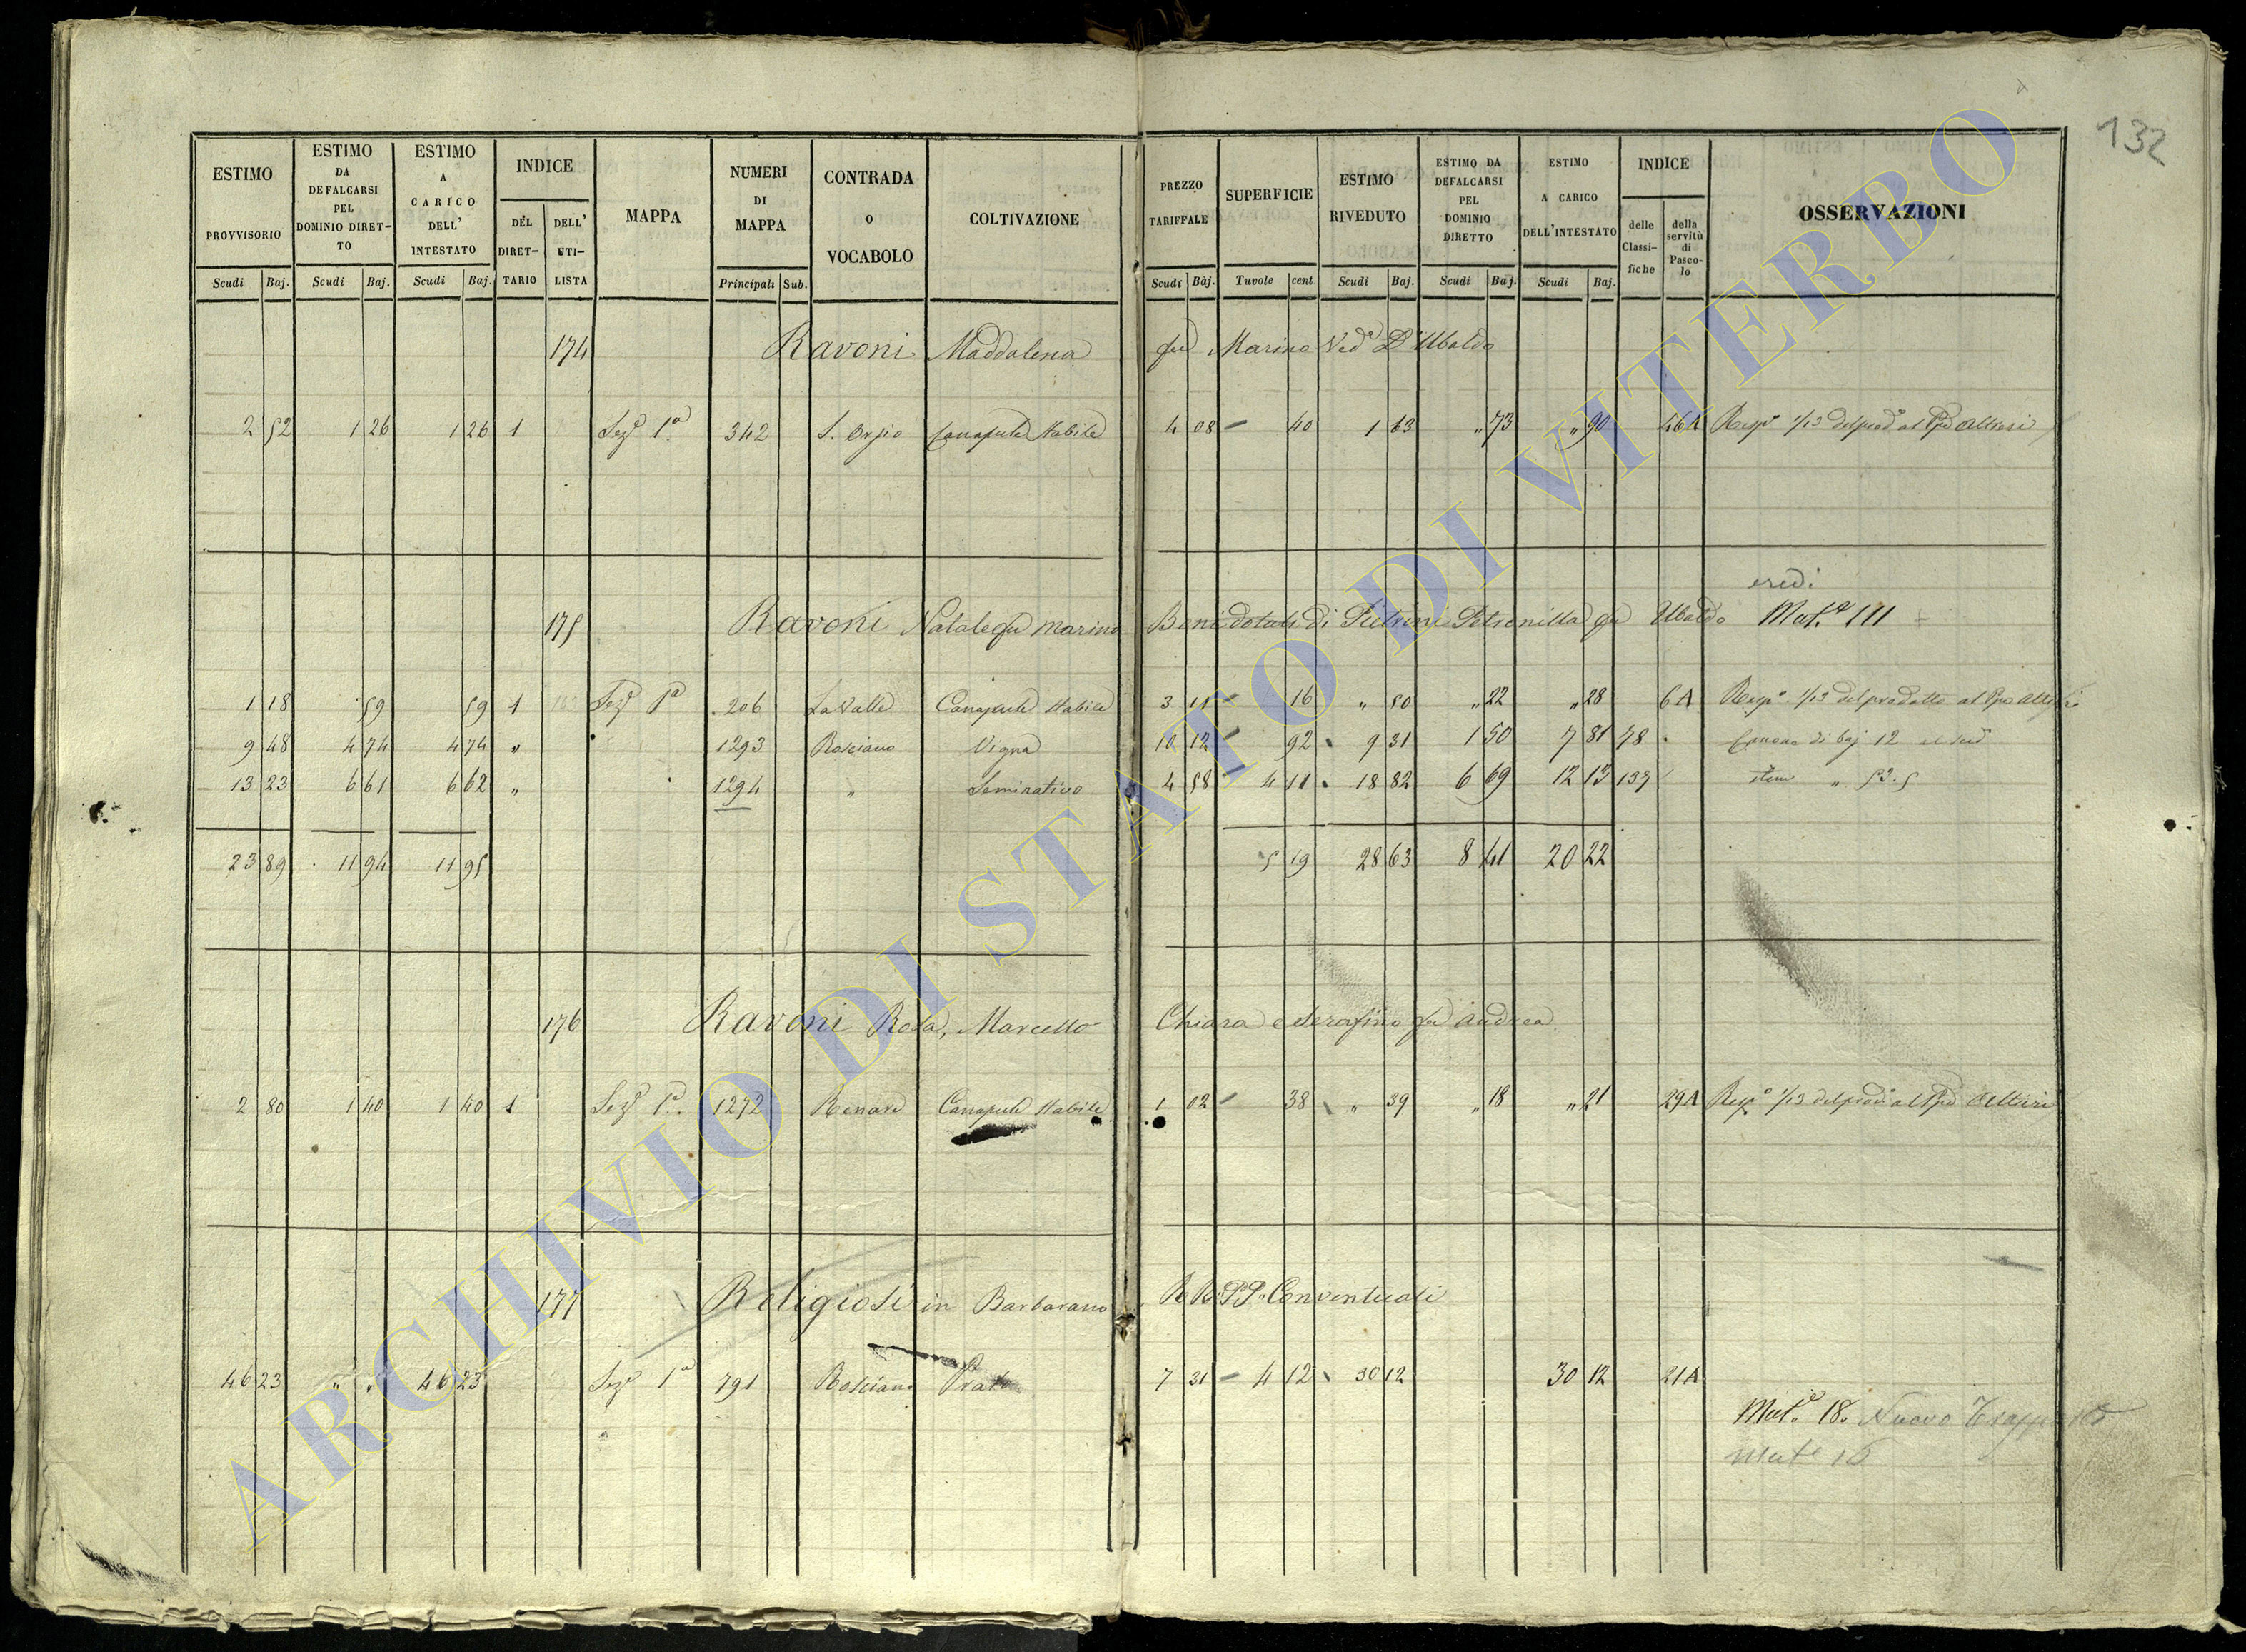 132
ESTIMO PROVVISORIO Scudi Baj.
ESTIMO DA DEFALCARSI PEL DOMINIO DIRETTO Scudi Baj.
ESTIMO A CARICO DELL' INTESTATO Scudi Baj.
INDICE DEL DIRETTARIO DELL' UTILISTA
MAPPA
NUMERI DI MAPPA Principali Sub.
CONTRADA O VOCABOLO
COLTIVAZIONE
PREZZO TARIFFALE Scudi Baj.
SUPERFICIE Tavole cent
ESTIMO RIVEDUTO Scudi Baj.
ESTIMO DA DEFALCARSI PEL DOMINIO DIRETTO Scudi Baj.
ESTIMO A CARICO DELL'INTESTATO Scudi Baj.
INDICE delle Classifiche della servitù di Pascolo
OSSERVAZIONI
174 Ravoni Maddalena fu Marino Ved.a D'Ubaldo
2 52 1 26 1 26 1 Sez.e 1.a 342 Canapule Stabile 4 08 40 1 63 " 73 " 90 46A 1/13
eredi
175 Ravoni Natale fu Marino Beni dotali di Pietrini Petronilla fu Ubaldo Mut.e 111
1 18 59 59 1 Sez.e 1.a 206 La Valle Canapule Stabile 3 11 16 " 50 " 22 " 28 6A 1/13 del prodotto al
9 48 4 74 4 74 " 1293 Rosciano Vigna 10 12 92 9 31 1 50 7 81 78 Canone di baj 12
13 23 6 61 6 62 " 1294 " Seminativo 4 58 4 11 18 82 6 69 12 13 133 item " 52.5
23 89 11 94 11 95 5 19 28 63 8 41 20 22
176 Ravoni Rosa, Marcello Chiara e Serafino fu Andrea
2 80 1 40 1 40 1 Sez.e 1.a 1272 Canapule Stabile 1 02 38 " 39 " 18 " 21 29A 1/13
177 Religiosi in Barbarano RR. PP. Conventuali
46 23 " " 46 23 Sez.e 1.a 791 Rosciano Prato 7 31 4 12 30 12 30 12 21A
Mut.e 18. Nuovo Trasporto
Mut.e 16
ARCHIVIO DI STATO DI VITERBO